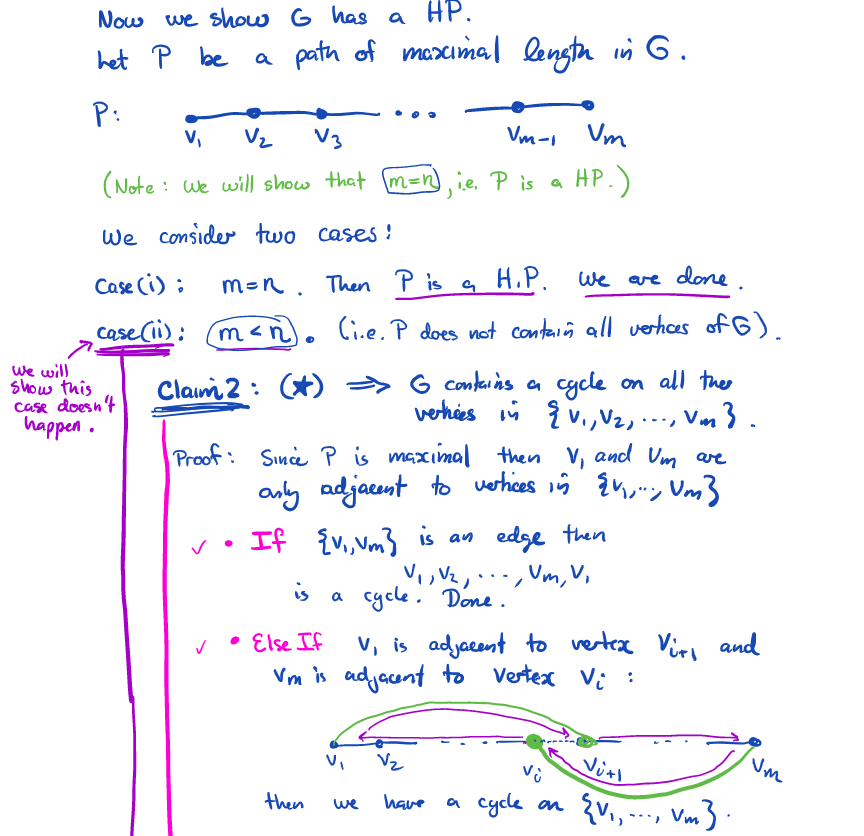 Now we show G has a HP.
Let P be a path of maximal length in G.
P:
v₁ v₂ v₃ ... vₘ₋₁ vₘ
(Note: we will show that m=n, i.e. P is a HP.)
We consider two cases:
Case(i): m=n. Then P is a H.P. We are done.
case(ii): m<n. (i.e. P does not contain all vertices of G).
we will
show this
case doesn't
happen.
Claim 2: (★) ⟹ G contains a cycle on all the
vertices in {v₁, v₂, ..., vₘ}.
Proof: Since P is maximal then v₁ and vₘ are
only adjacent to vertices in {v₁, .., vₘ}
✓ • If {v₁, vₘ} is an edge then
v₁, v₂, ..., vₘ, v₁
is a cycle. Done.
✓ • Else If v₁ is adjacent to vertex vᵢ₊₁ and
vₘ is adjacent to vertex vᵢ:
v₁ v₂ vᵢ vᵢ₊₁ vₘ
then we have a cycle on {v₁, ..., vₘ}.